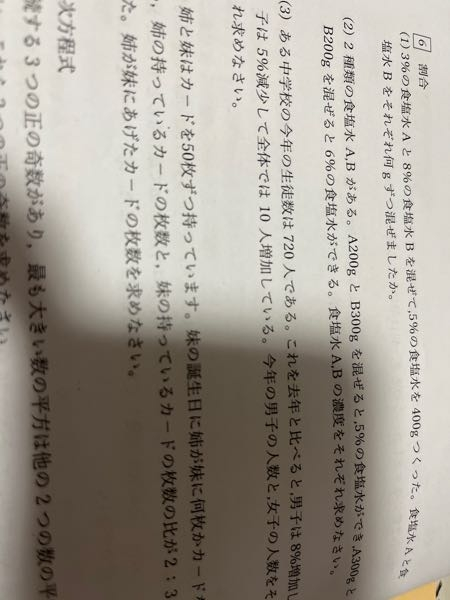 6 割合
(1) 3%の食塩水Aと8%の食塩水Bを混ぜて,5%の食塩水を400gつくった。食塩水Aと食
塩水Bをそれぞれ何gずつ混ぜましたか。
(2) 2種類の食塩水A,Bがある。A200gとB300gを混ぜると,5%の食塩水ができ,A300gと
B200gを混ぜると6%の食塩水ができる。食塩水A,Bの濃度をそれぞれ求めなさい。
(3) ある中学校の今年の生徒数は720人である。これを去年と比べると,男子は8%増加し
子は5%減少して全体では10人増加している。今年の男子の人数と,女子の人数をそ
れ求めなさい。
姉と妹はカードを50枚ずつ持っています。妹の誕生日に姉が妹に何枚かカードを
、姉の持っているカードの枚数と、妹の持っているカードの枚数の比が2:3
た。姉が妹にあげたカードの枚数を求めなさい。
次方程式
続する3つの正の奇数があり、最も大きい数の平方は他の2つの数の平
の正の奇数を求めなさい